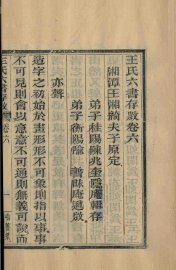 王氏六書存微卷六
湘潭王湘綺夫子原定
弟子桂陽陳兆奎隱庵輯存
弟子衡陽
亦聲
造字之初始於畫形形不可象則指以事事
不可見則會以意意不可通則無義可說而
王氏六書存微
卷六
一